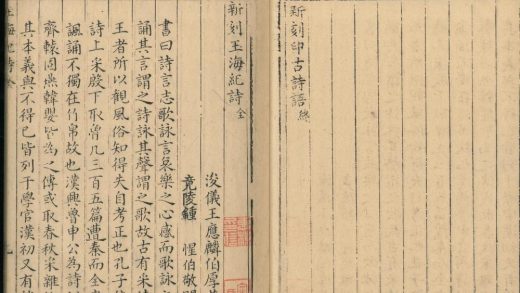 新刻印古詩語終
新刻玉海紀詩 全
浚儀王應麟伯厚
竟陵鍾 惺伯敬閱
書曰詩言志歌詠言哀樂之心感而歌詠
誦其言謂之詩詠其聲謂之歌故古有采
王者所以觀風俗知得失自考正也孔子
詩上采殷下取魯凡三百五篇遭秦而全
諷誦不獨在竹帛故也漢興魯申公為詩
齊轅固燕韓嬰皆為之傳或取春秋采雜
其本義與不得已皆列于學官漢初又有
海紀詩全